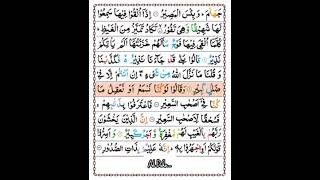 جَهَنَّمَ ؕ وَ بِئْسَ الْمَصِيْرُ ۝ اِذَاۤ اُلْقُوْا فِيْهَا سَمِعُوْا
لَهَا شَهِيْقًا وَّ هِيَ تَفُوْرُ ۝ تَكَادُ تَمَيَّزُ مِنَ الْغَيْظِ ؕ
كُلَّمَاۤ اُلْقِيَ فِيْهَا فَوْجٌ سَاَلَهُمْ خَزَنَتُهَاۤ اَلَمْ يَاْتِكُمْ
نَذِيْرٌ ۝ قَالُوْا بَلٰى قَدْ جَآءَنَا نَذِيْرٌ ۙ فَكَذَّبْنَا
وَ قُلْنَا مَا نَزَّلَ اللّٰهُ مِنْ شَيْءٍ ۖۚ اِنْ اَنْتُمْ اِلَّا فِيْ
ضَلٰلٍ كَبِيْرٍ ۝ وَ قَالُوْا لَوْ كُنَّا نَسْمَعُ اَوْ نَعْقِلُ مَا
كُنَّا فِيْۤ اَصْحٰبِ السَّعِيْرِ ۝ فَاعْتَرَفُوْا بِذَنْۢبِهِمْ ۚ
فَسُحْقًا لِّاَصْحٰبِ السَّعِيْرِ ۝ اِنَّ الَّذِيْنَ يَخْشَوْنَ
رَبَّهُمْ بِالْغَيْبِ لَهُمْ مَّغْفِرَةٌ وَّ اَجْرٌ كَبِيْرٌ ۝ وَ اَسِرُّوْا
قَوْلَكُمْ اَوِ اجْهَرُوْا بِهٖ ؕ اِنَّهٗ عَلِيْمٌۢ بِذَاتِ الصُّدُوْرِ ۝